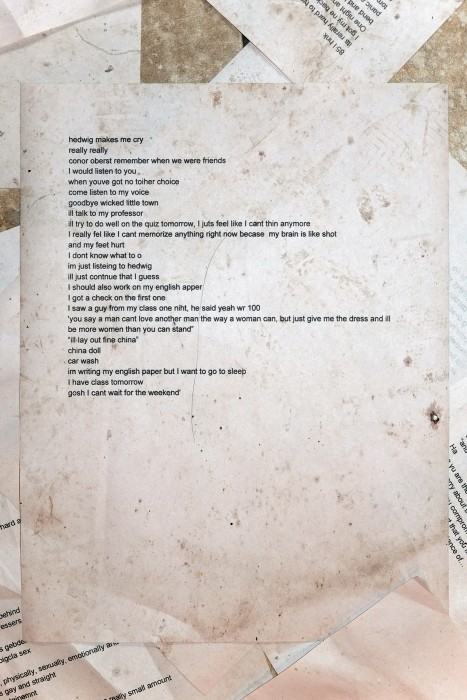 I got my
One night
hedwig makes me cry
really really
conor oberst remember when we were friends
I would listen to you
when youve got no toiher choice
come listen to my voice
goodbye wicked little town
ill talk to my professor
ill try to do well on the quiz tomorrow, I juts feel like I cant thin anymore
I really fel like I cant memorize anything right now becase my brain is like shot
and my feet hurt
I dont know what to o
im just listeing to hedwig
ill just contnue that I guess
I should also work on my english apper
I got a check on the first one
I saw a guy from my class one niht, he said yeah wr 100
'you say a man cant love another man the way a woman can, but just give me the dress and ill
be more women than you can stand"
"ill lay out fine china"
china doll
car wash
im writing my english paper but I want to go to sleep
I have class tomorrow
gosh I cant wait for the weekend'
Ha
yu are the
hard a
behind
physically, sexually, emotionally
gay and straight
really small amount